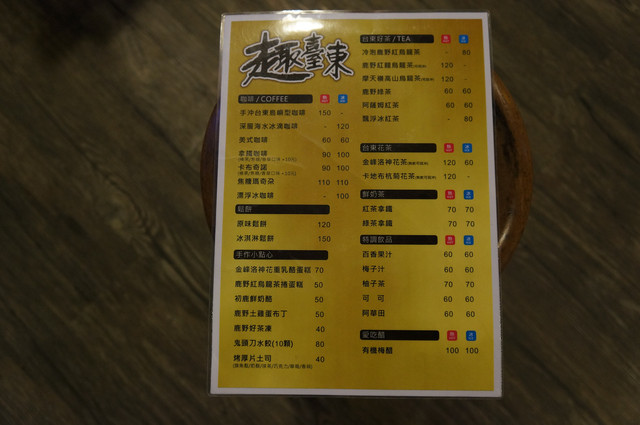 趣臺東
咖啡 / COFFEE 熱 冰
手沖台東島嶼型咖啡 150 -
深層海水冰滴咖啡 - 120
美式咖啡 60 60
拿鐵咖啡 90 100
卡布奇諾 90 100
焦糖瑪奇朵 110 110
漂浮冰咖啡 - 100
鬆餅
原味鬆餅 120
冰淇淋鬆餅 150
手作小點心
金峰洛神花重乳酪蛋糕 70
鹿野紅烏龍茶捲蛋糕 50
初鹿鮮奶酪 50
鹿野土雞蛋布丁 50
鹿野好茶凍 40
鬼頭刀水餃(10顆) 80
烤厚片土司 40
台東好茶 / TEA 熱 冰
冷泡鹿野紅烏龍茶 - 80
鹿野紅烏龍茶 120 -
摩天嶺高山烏龍茶 120 -
鹿野綠茶 60 60
阿薩姆紅茶 60 60
飄浮冰紅茶 - 80
台東花茶 熱 冰
金峰洛神花茶 120 60
卡地布杭菊花茶 120 -
鮮奶茶 熱 冰
紅茶拿鐵 70 70
綠茶拿鐵 70 70
特調飲品 熱 冰
百香果汁 60 60
梅子汁 60 60
柚子茶 70 70
可 可 60 60
阿華田 60 60
愛吃醋 熱 冰
有機梅醋 100 100